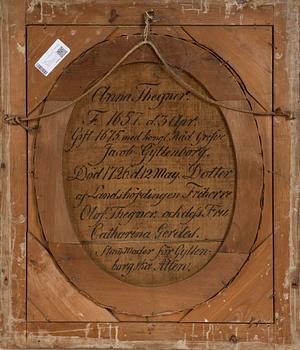 Anna Thegner.
F. 1657. d. 3 Apr.
Gift 1675 med kongl. Råd. Grefve
Jacob Gyllenborg.
Död 1726 d. 12 May. Dotter
af Landshöfdingen Friherre
Olof Thegner. och dess Fru
Cathorina Gerdes.
Stam Moder för Gyllen-
borgska Ätten.